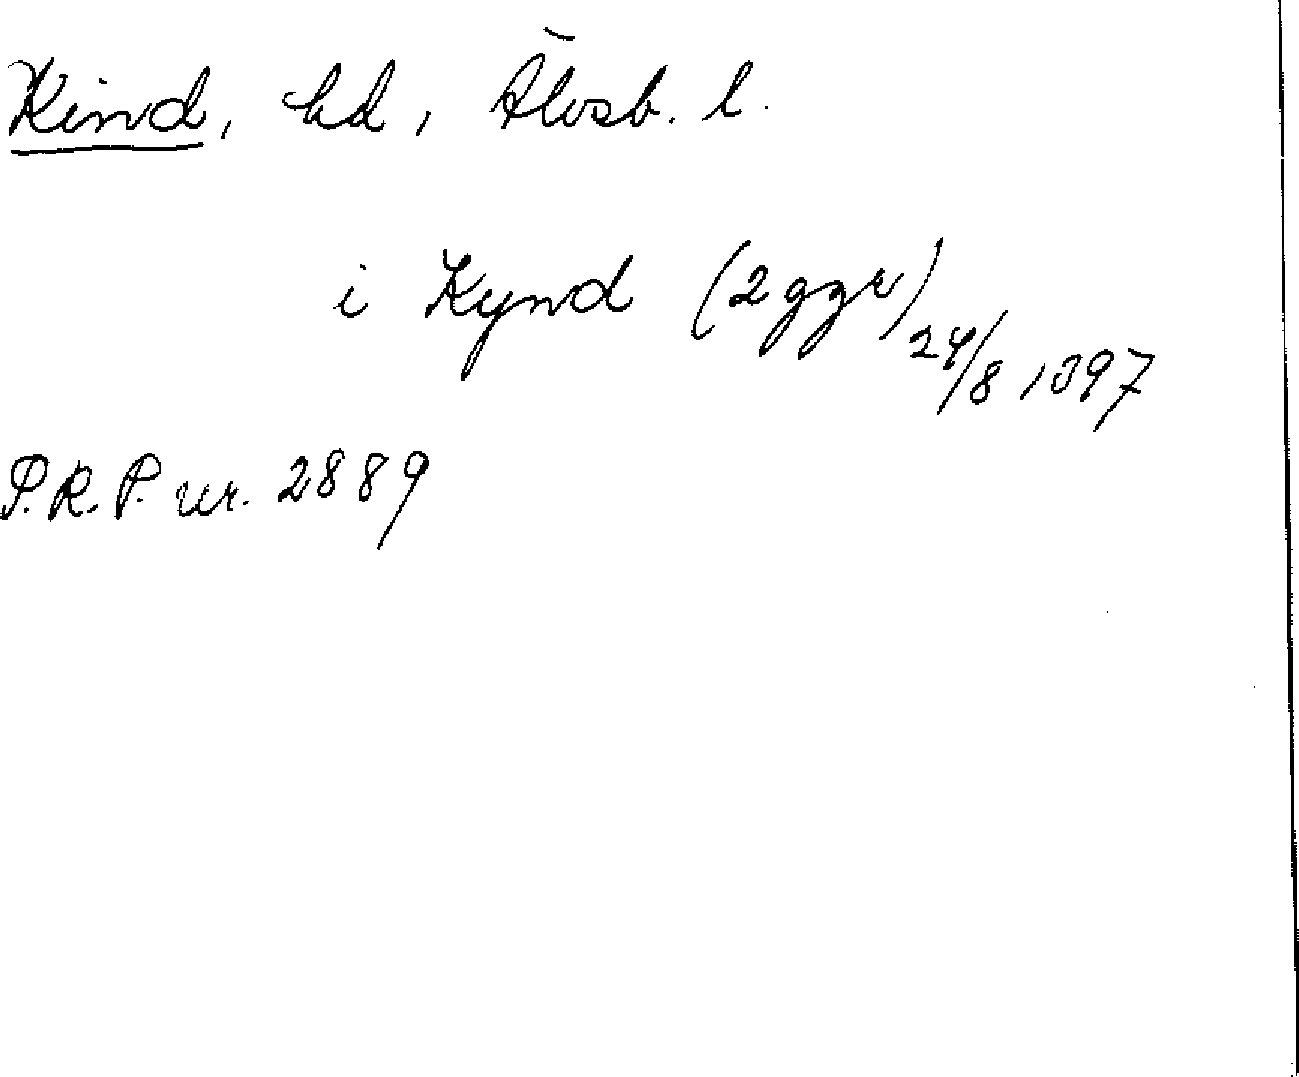 Kind, hd, Älvsb. l.
i Kynd (2 ggr) 24/8 1397
P.R.P. nr. 2889